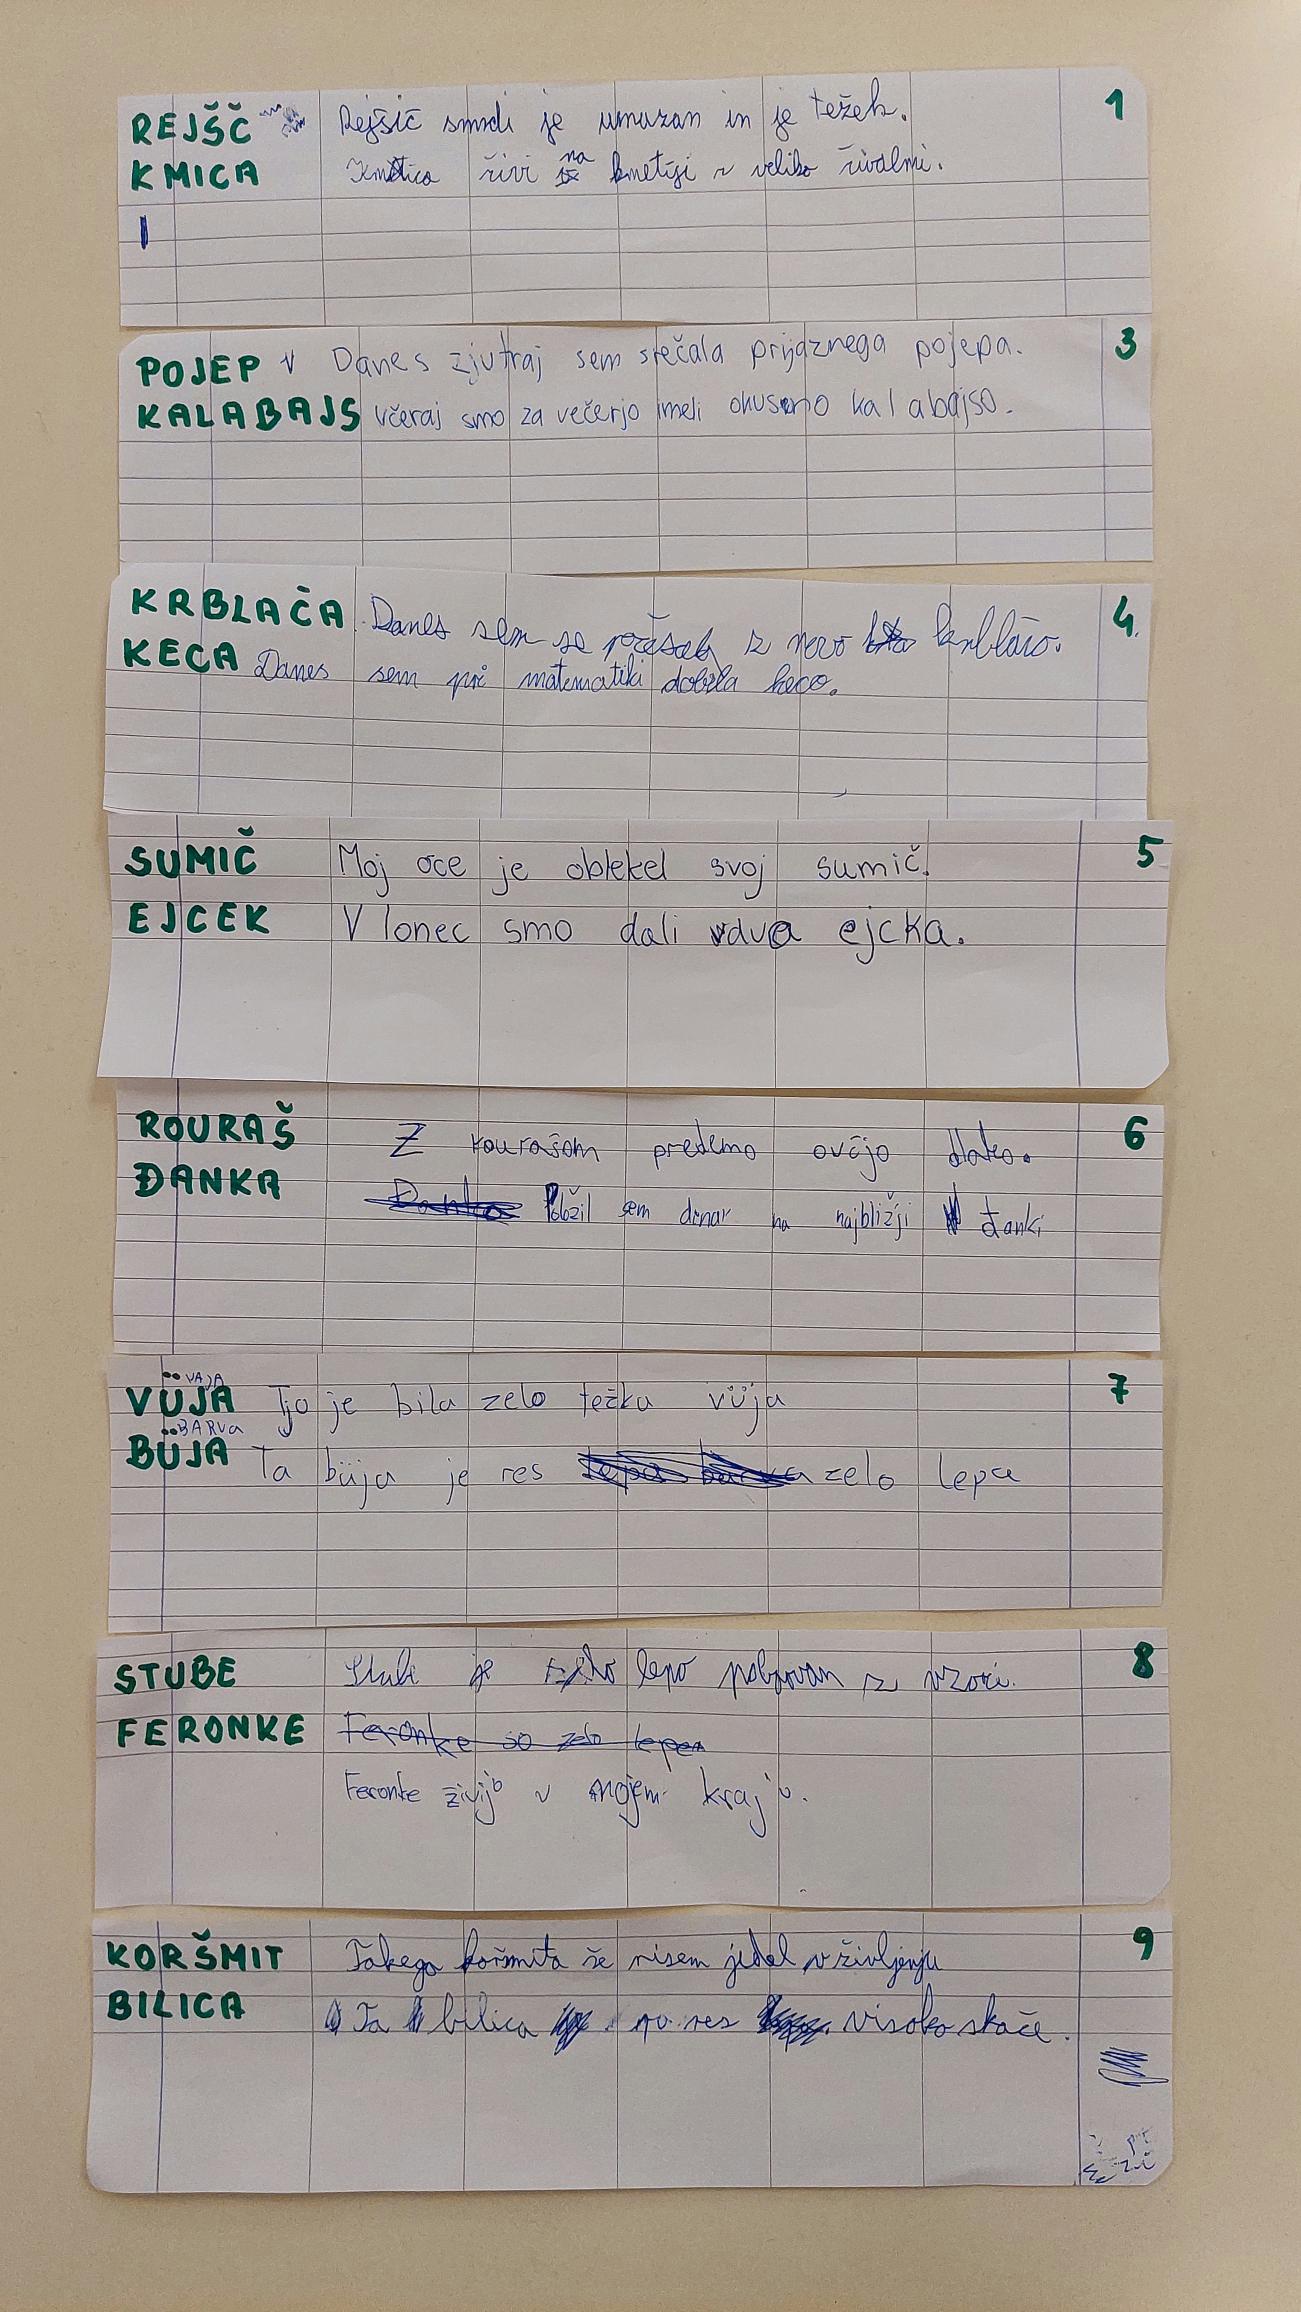 REJŠČ Rejšič smrdi je umazan in je težek. 1
KMICA Kmica živi na kmetiji z veliko živalmi.
POJEP Danes zjutraj sem srečala prijaznega pojepa. 3
KALABAJS včeraj smo za večerjo imeli okusno kalabajso.
KRBLAČA Danes sem se počesala z novo krblačo. 4.
KECA Danes sem pri matematiki dobila keco.
SUMIČ Moj oče je oblekel svoj sumič. 5
EJCEK V lonec smo dali dva ejcka.
ROURAŠ Z rourašom predemo ovčjo dlako. 6
ĐANKA Položil sem denar na najbližji đanki
VAJA
VÜJA To je bila zelo težka vüja 7
BARVA
BÜJA Ta büja je res zelo lepa
STUBE Stube je lepo pobarvan z vzorci. 8
FERONKE Feronke so zelo lepe
Feronke živijo v mojem kraju.
KORŠMIT Takega koršmita še nisem jedel v življenju 9
BILICA Ta bilica pa res visoko skače.